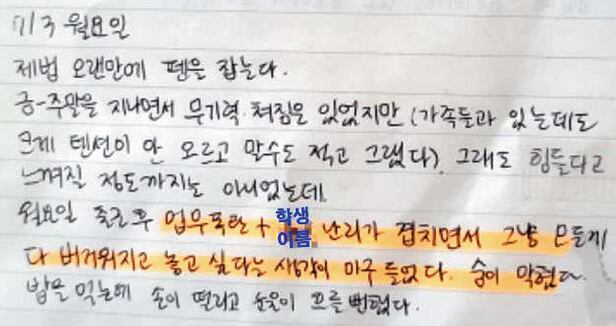 7/3 월요일
제법 오랜만에 펜을 잡는다.
금-주말을 지나면서 무기력. 쳐짐은 있었지만 (가족들과 있는데도
크게 텐션이 안 오르고 말수도 적고 그랬다), 그래도 힘들다고
느껴질 정도까지는 아니었는데,
월요일 출근 후 업무폭탄 + 학생 이름 난리가 겹치면서 그냥 모든게
다 버거워지고 놓고 싶다는 생각이 마구 들었다. 숨이 막혔다.
밥을 먹는데 손이 떨리고 눈물이 흐를 뻔했다.